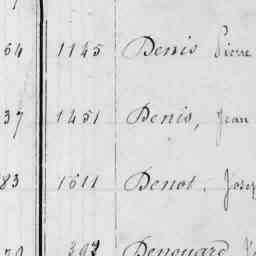 64 1145 Denis Pierre
37 1451 Denis, Jean
83 1611 Benot, Josep
392 Denouard